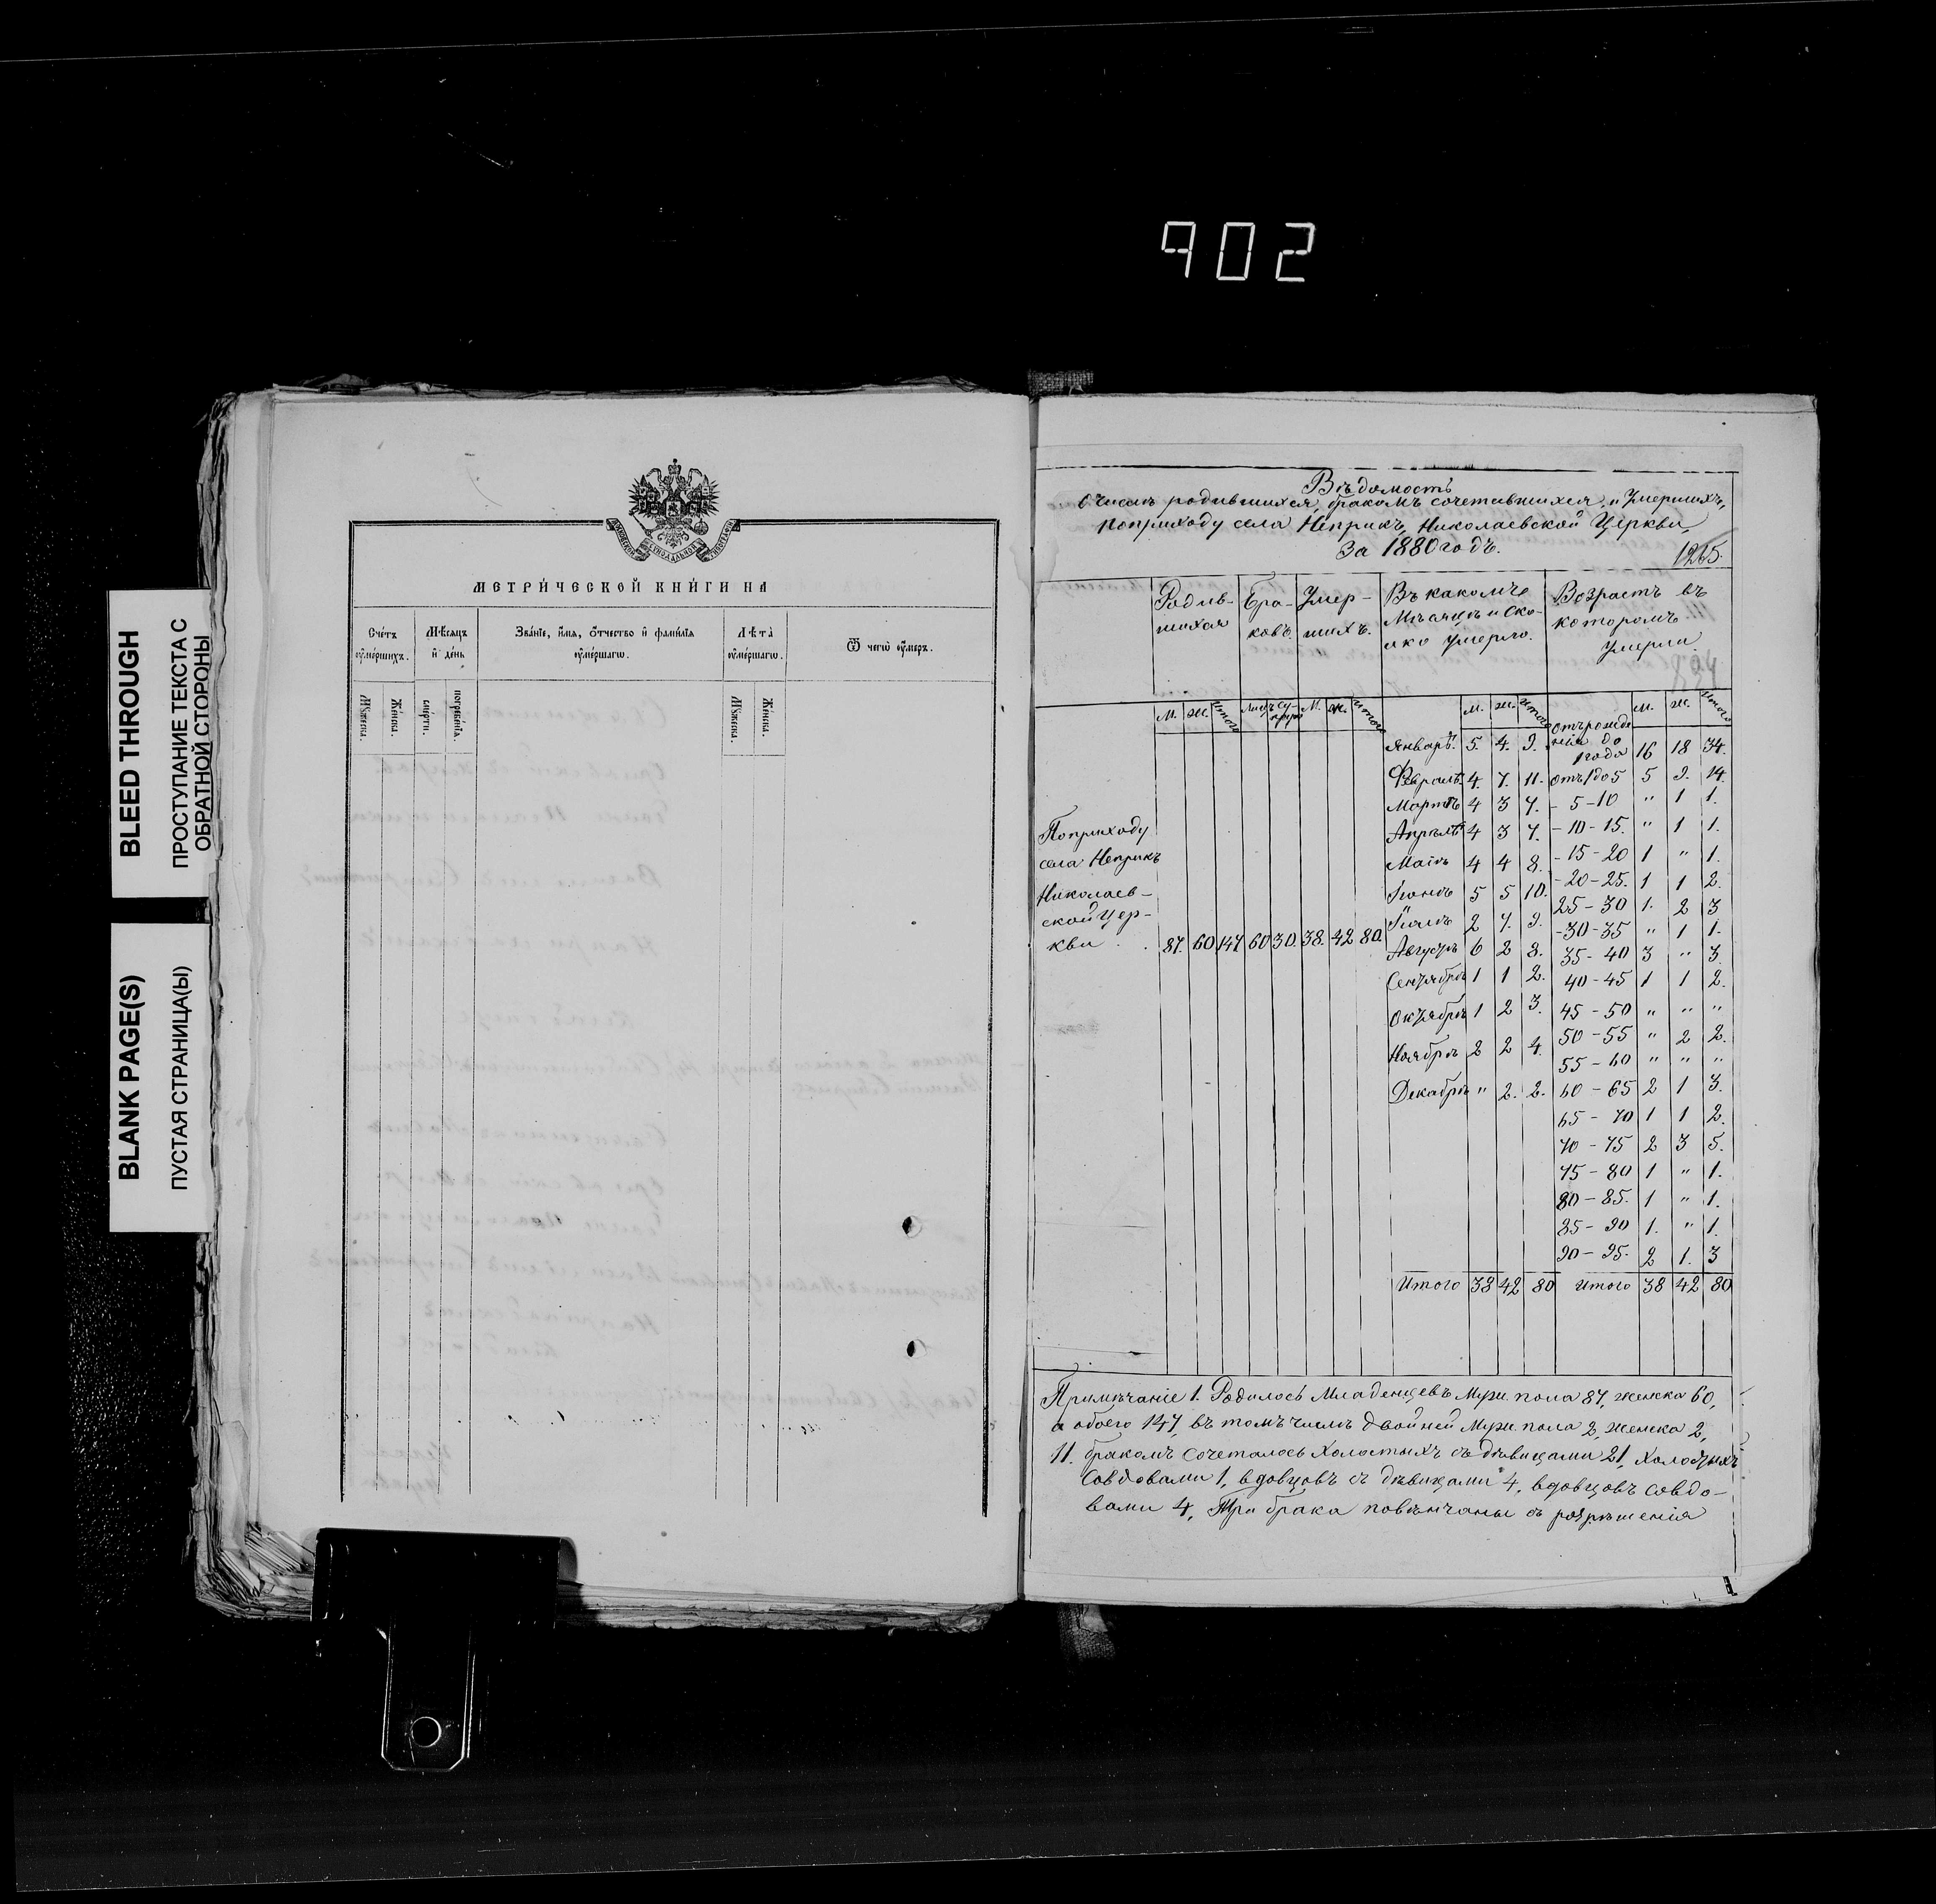 902
BLEED THROUGH
ПРОСТУПАНИЕ ТЕКСТА С
ОБРАТНОЙ СТОРОНЫ
BLANK PAGE(S)
ПУСТАЯ СТРАНИЦА(Ы)
МЕТРИ́ЧЕСКОЙ КНИ́ГИ НА
Сче́тъ ᲂу҆ме́ршихъ.
Мѣ́сяцъ и҆ де́нь
Зва́нїе, и҆́мѧ, ѻ҆́тчество и҆ фами́лїѧ ᲂу҆ме́ршагѡ.
Лѣ́та ᲂу҆ме́ршагѡ.
Ѿ чегѡ̀ ᲂу҆́меръ.
Мꙋ́жеска.
Же́нска.
сме́рти.
погребе́нїѧ.
Мꙋ́жеска.
Же́нска.
Вѣдомость
о числѣ родившихся, бракомъ сочетавшихся, и Умершихъ,
поприходу села Неприкъ, Николаевской Церкви,
За 1880 годъ.
1265.
Родив-
шихся
Бра-
ковъ.
Умер-
шихъ.
Въ какомъ
Мѣсяцѣ и Ско-
лко умерло.
Возрастъ въ
которомъ
Умерли.
894
М. Ж. Итого Лицъ Су-пруж М. Ж. Итого М. Ж. Итого М. Ж. Итого
Январь. 5. 4. 9. Отърожде-
нія до
1 года 16 18 34.
Февраль. 4. 7. 11. отъ 1 до 5 5 9. 14.
Мартъ 4 3 7. - 5-10 " 1 1.
Апрѣль 4 3 7. - 10-15. " 1 1.
Маіъ 4 4 8. - 15-20 1 " 1.
-20-25. 1 1 2.
Іюнь 5 5 10. 25-30 1. 2 3
Іюль 2 7. 9. -30-35 " 1 1.
Августъ 6 2 8. 35-40 3 " 3.
Сентябрь 1 1 2. 40-45 1 1 2.
Октябрь 1 2 3. 45-50 " " "
50-55 " 2 2.
Ноябрь 2 2 4. 55-60 " " "
Декабрь " 2. 2. 60-65 2 1 3.
65-70 1 1 2.
70-75 2 3 5.
75-80 1 " 1.
80-85. 1 " 1.
85-90 1. " 1.
90-95. 2 1. 3
Итого 38 42 80 Итого 38 42 80
Поприходу
села Неприкъ
Николаев-
ской Цер-
кви . . 87. 60 147 60 30. 38. 42 80.
Примѣчаніе 1. Родилось Младенцевъ Муж. пола 87, женска 60,
а обоего 147, въ томъ числѣ двойней Муж. пола 2, женска 2,
11. бракомъ Сочеталось Холостыхъ съ дѣвицами 21, Холостыхъ
Совдовами 1, вдовцовъ съ дѣвицами 4, вдовцовъ Совдо-
вами 4, Три брака повѣнчаны съ разрѣшенія